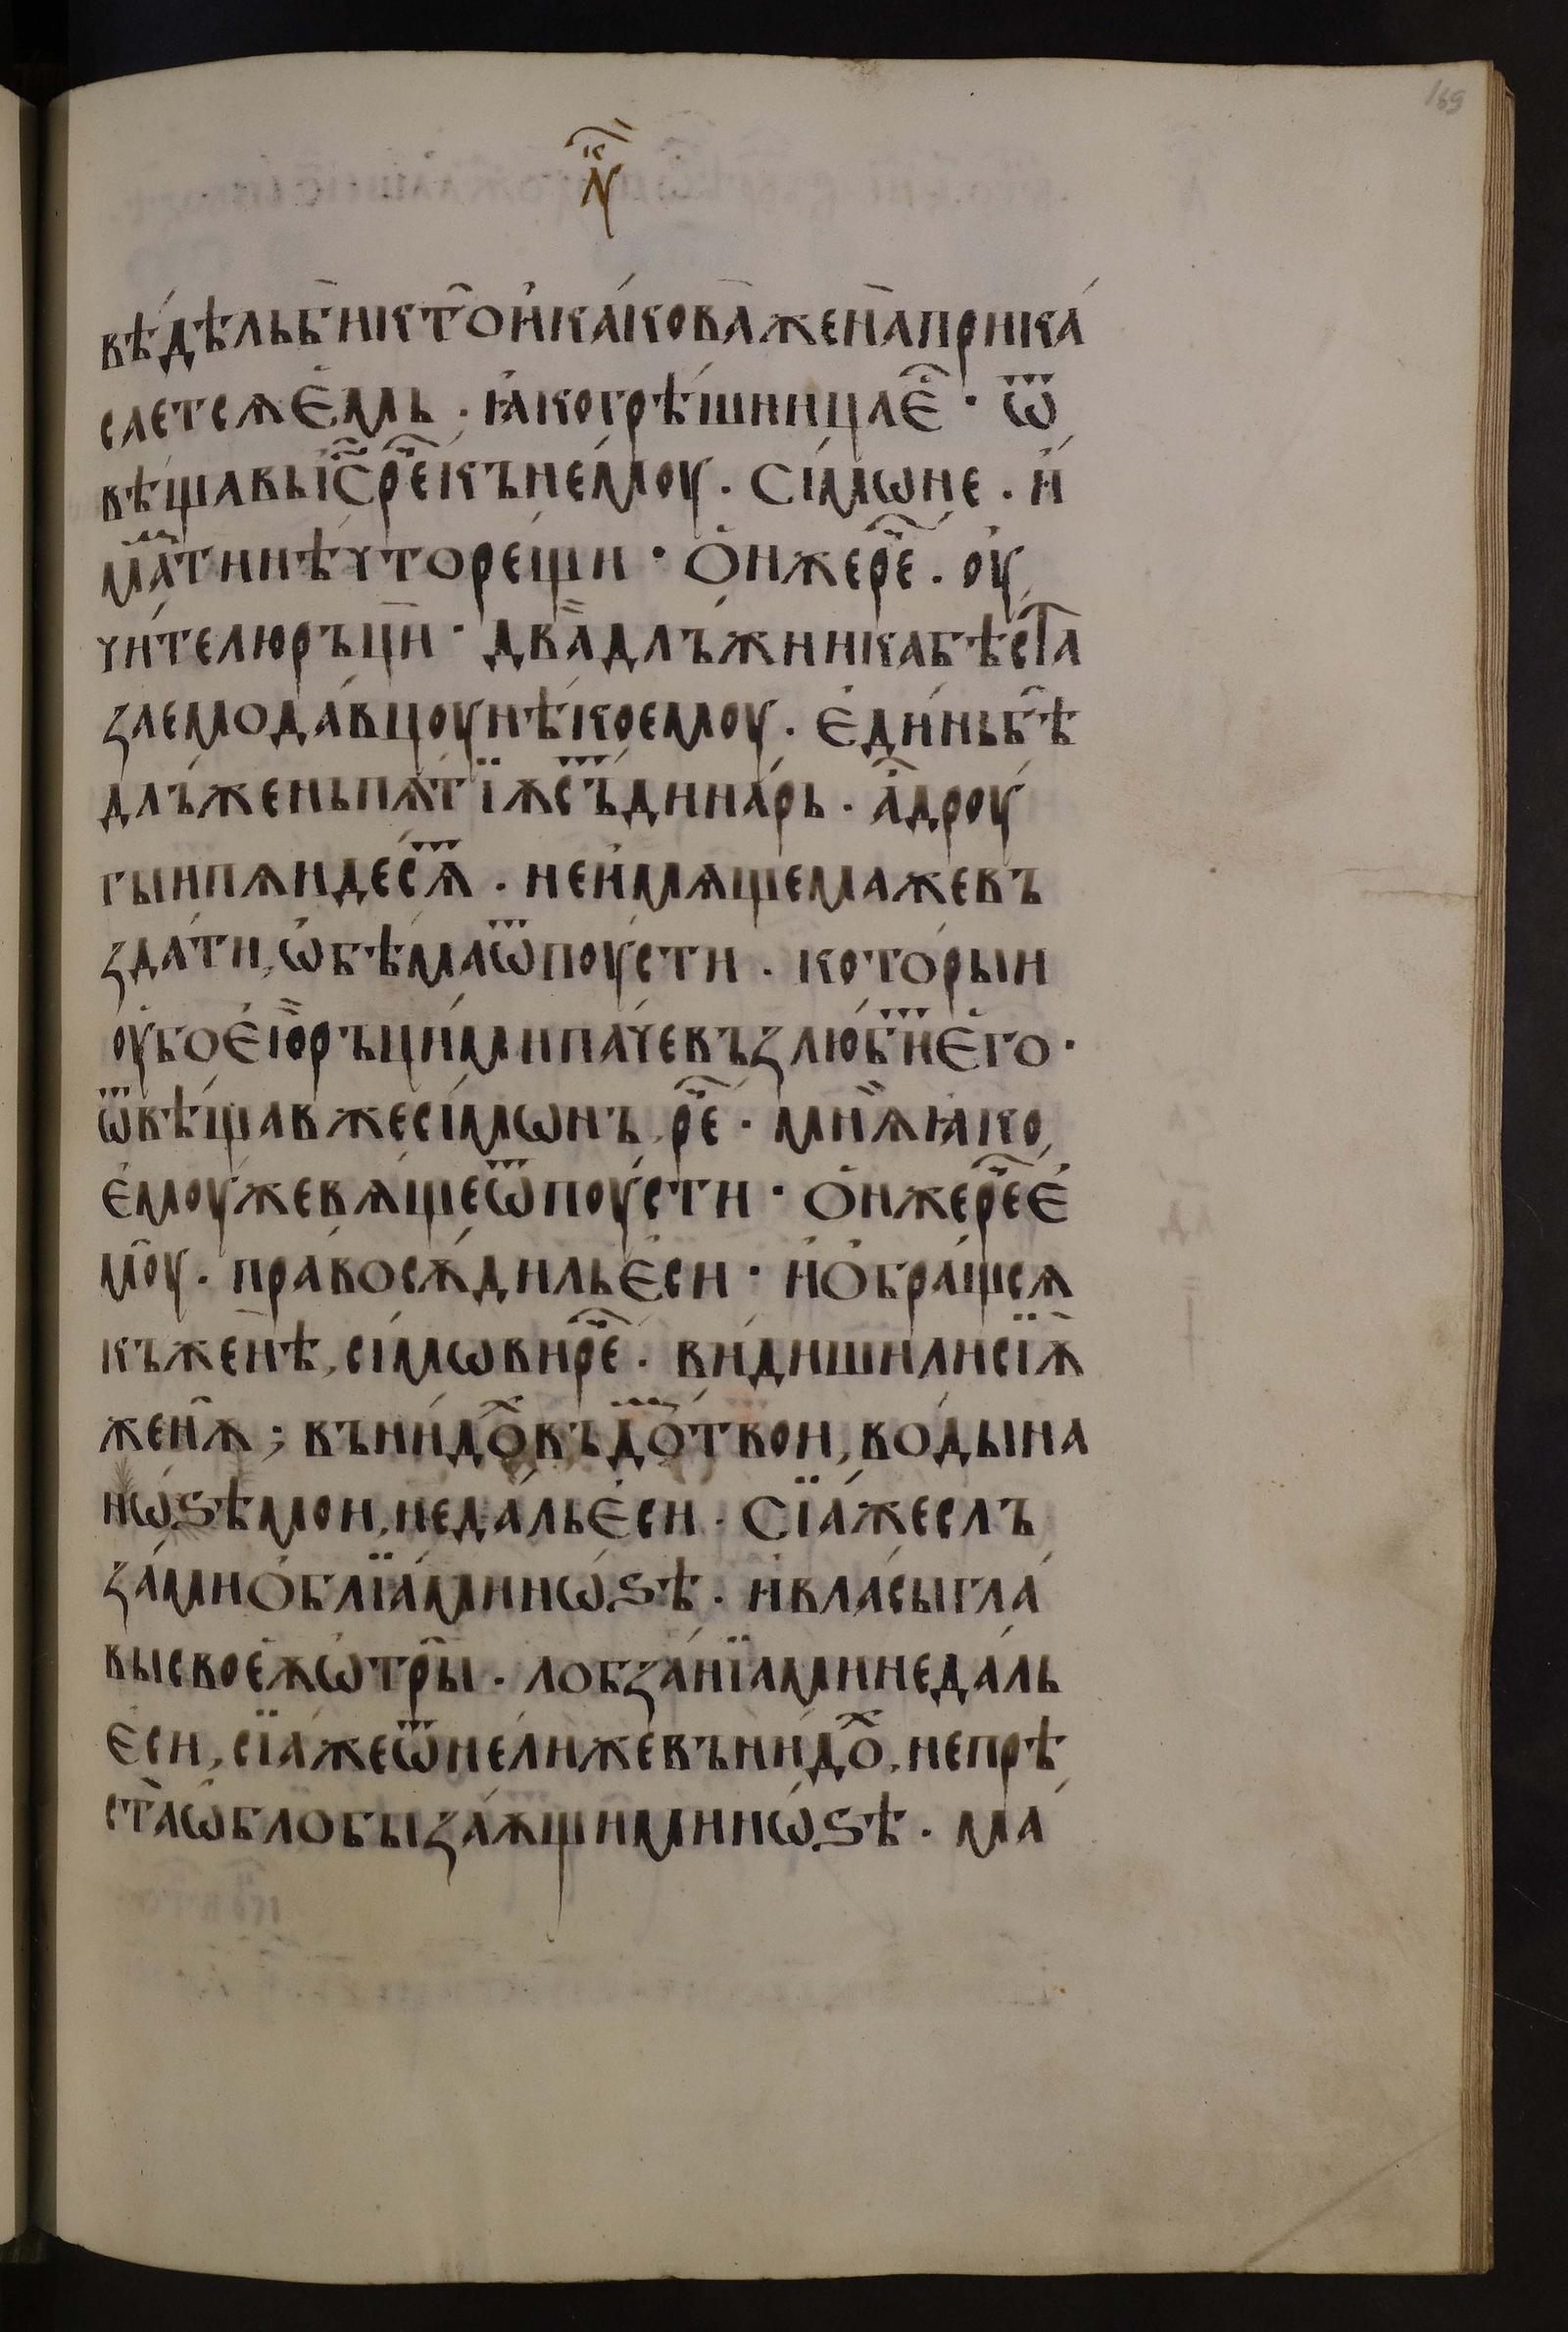 169
лꙋк
вѣ́дѣльби кт̑о и҆ кака́ кова̀ жена̀ прика́
саетсѧ є҆мь . ꙗ҆ко грѣ́шница є҆҃ · ѿ
вѣща́вь і҆с҃ рⷱ҇е къ нем́оу . сі́мѡне . и҆́
маⷨ҇ти нѣ́что рещи́ · ѻ҆н же рⷱ҇е . оу҆
чи́телю ръцѝ · два̀ длъжни́ка бѣ́ста̑
заемода́вцоу нѣ́коемоу . є҆ди́нь бѣ̑
длъ́жень пѧ́тїѫ съⷮ дина́рь . а҆̑ дроу́
гыи пѧ҆ндесѧ́ⷮ . не и҆мѧ́щема же въ
зда́ти, ѡ҆бѣ́ма ѿпоу́сти . кото́рыи
оу҆бо є҆ю̀ ръци́ ми па́че възлю́биⷮ є҆го ·
ѿвѣща́в же сі́мѡнъ, рⷱ҇е · мнѧ̀ ꙗ҆ко,
є҆моу́ же вѧ́ще ѿпоу́сти · ѻ҆н же рⷱ҇е є҆
мо̑у . пра́во сѫ́диль є҆си · и҆ ѻ҆бра́щсѧ
къ жен̀ѣ, сі́мѡви рⷱ҇е . ви́диши ли сїѫ̀
жен̑ѫ ; въни́доⷯ въ доⷨ҇ твои, воды̀ на
нѡ́ѕѣ мои, не да́ль є҆си . Сїа́ же слъ
за́ми ѻ҆блїа́ ми нѡ́ѕѣ . и҆ вла́сы гла
вы́ своеѫ̀ ѡ҆три̑ . лобза́нїа ми не да́ль
є҆си, сїа́ же ѿне́лиже въни́доⷯ, не прѣ
ста̀ ѡ҆блобыза́ѫщи ми нѡ́ѕѣ . ма́